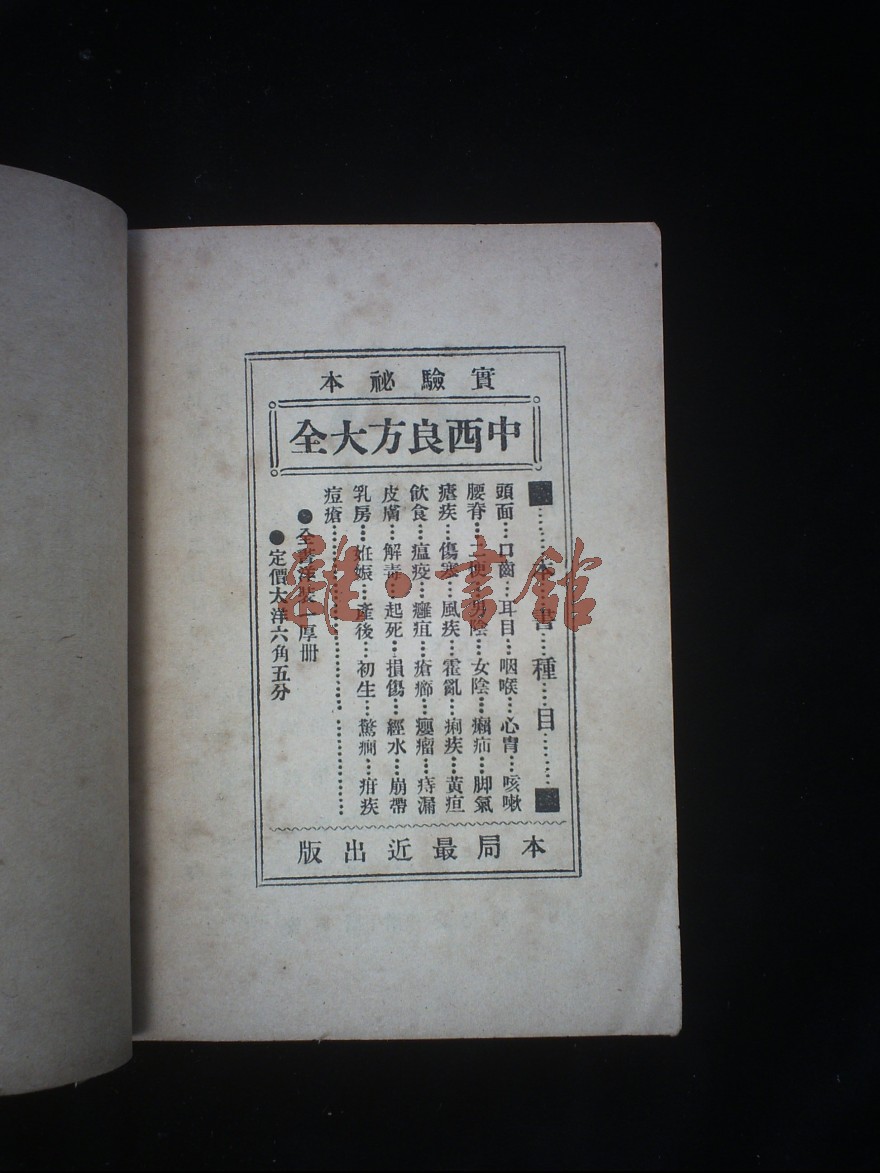 實驗祕本
中西良方大全
■………本…書…種…目………■
頭面…口齒…耳目…咽喉…心胃…咳嗽
腰脊…二便…男陰…女陰…癩疝…脚氣
瘧疾…傷寒…風疾…霍亂…痢疾…黃疸
飲食…瘟疫…癰疽…瘡癤…癭瘤…痔漏
皮膚…解毒…起死…損傷…經水…崩帶
乳房…姙娠…產後…初生…驚癇…疳疾
痘瘡………………………………
●全書洋裝一厚冊
●定價大洋六角五分
本局最近出版
雜·書館